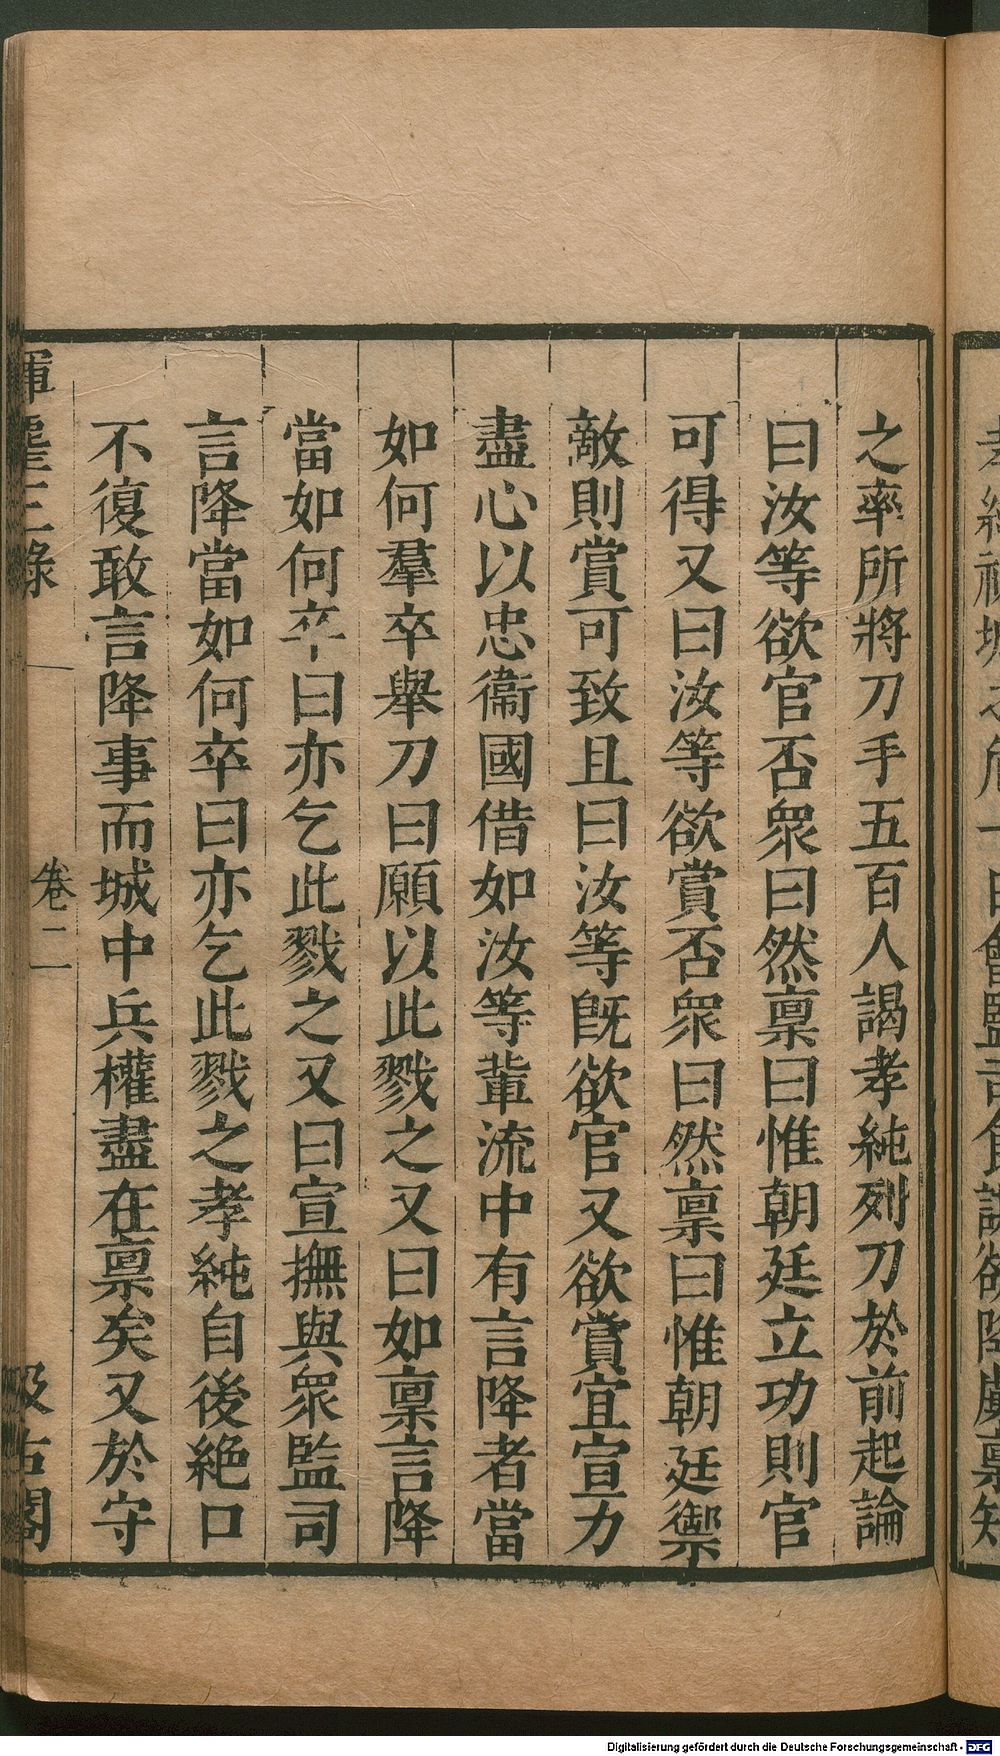 之率所將刀手五百人謁孝純列刀於前起論
曰汝等欲官否衆曰然禀曰惟朝廷立功則官
可得又曰汝等欲賞否衆曰然禀曰惟朝廷禦
敵則賞可致且曰汝等旣欲官又欲賞宜宣力
盡心以忠衞國借如汝等輩流中有言降者當
如何羣卒舉刀曰願以此戮之又曰如禀言降
當如何卒曰亦乞此戮之又曰宣撫與衆監司
言降當如何卒曰亦乞此戮之孝純自後絕口
不復敢言降事而城中兵權盡在禀矣又於守
揮麈三錄
卷二
汲古閣
Digitalisierung gefördert durch die Deutsche Forschungsgemeinschaft - DFG